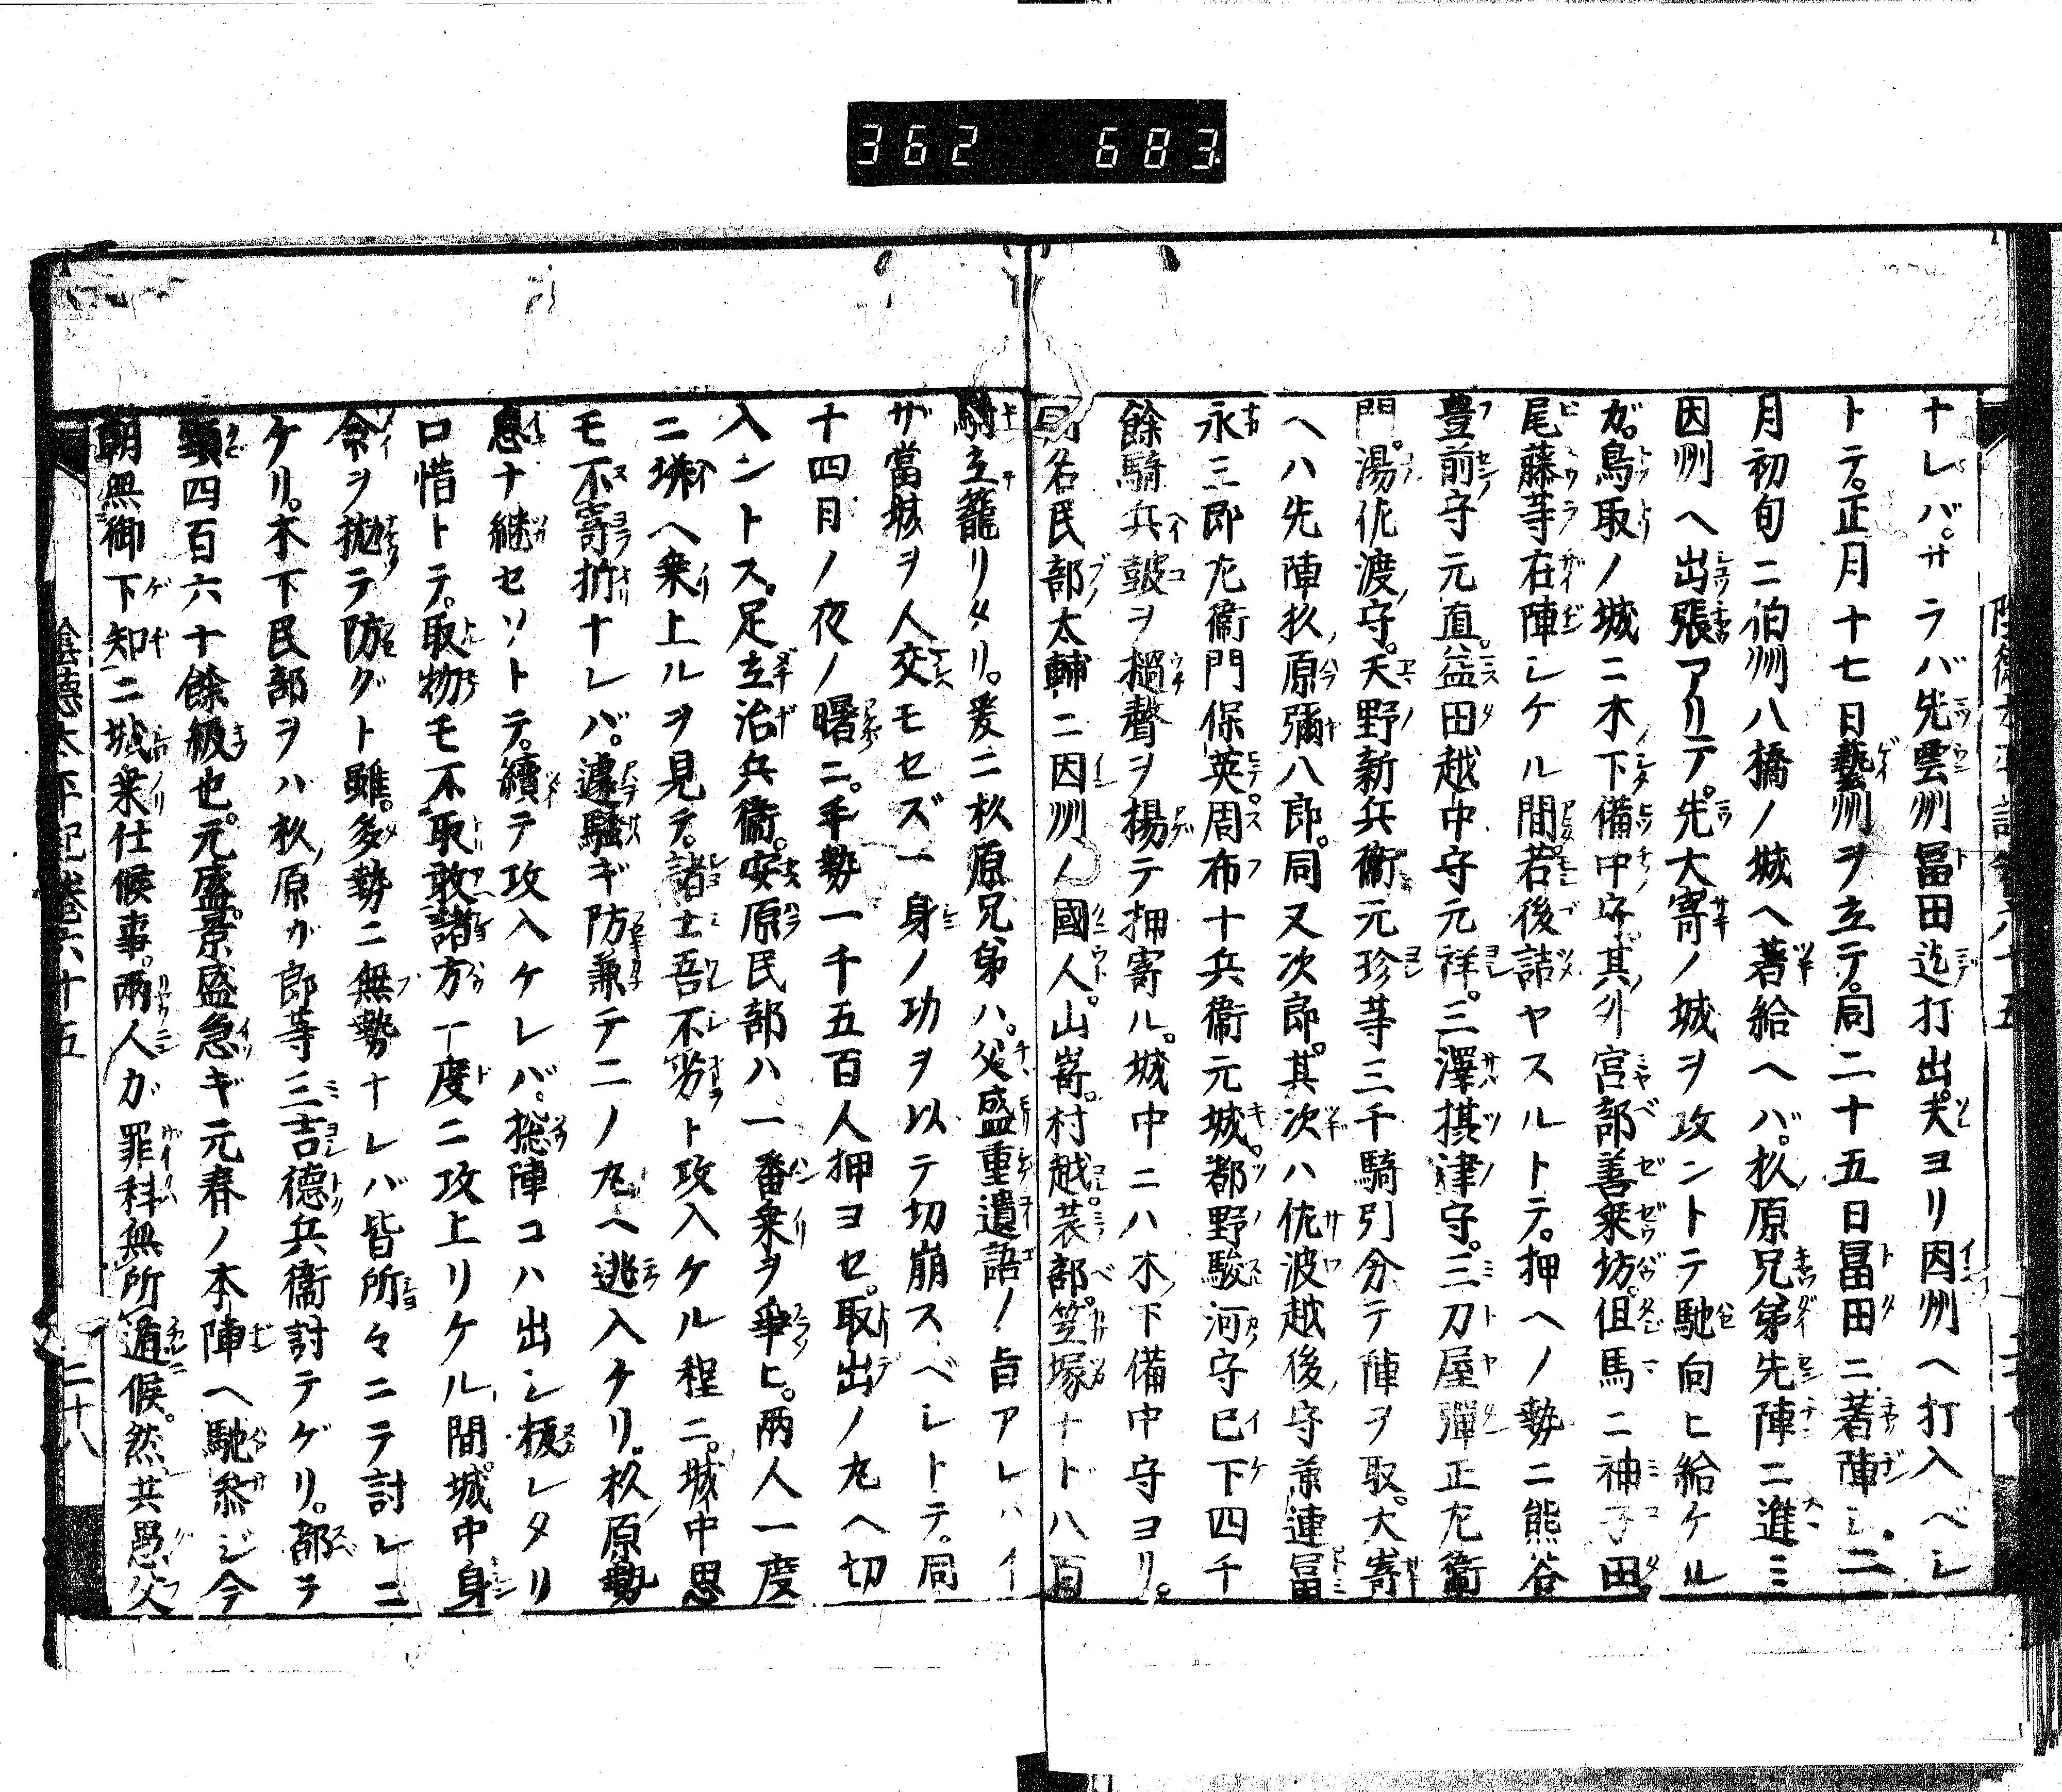 362 683
ナレバ。サラバ先雲州冨田迄打出。夫ヨリ因州ヘ打入ベシ
トテ。正月十七日藝州ヲ立テ。同二十五日冨田ニ著陣シ。二
月初旬ニ伯州八橋ノ城ヘ著給ヘバ。杦原兄弟先陣ニ進ミ
因州ヘ出張アリテ。先大寄ノ城ヲ攻ントテ馳向ヒ給ケル
ガ。鳥取ノ城ニ木下備中守。其外宮部善乗坊。伹馬ニ神子田
尾藤等在陣シケル間。若後詰ヤスルトテ。押ヘノ勢ニ熊谷
豊前守元直。益田越中守元祥。三澤摂津守。三刀屋彈正左衛
門。湯佐渡守。天野新兵衛元珍等三千騎引分テ陣ヲ取。大寄
ヘハ先陣杦原彌八郎。同又次郎。其次ハ佐波越後守兼連冨
永三郎左衛門保英。周布十兵衛元城。都野駿河守已下四千
餘騎兵皷ヲ撾聲ヲ揚テ押寄ル。城中ニハ木下備中守ヨリ。
名民部太輔ニ因州ノ國人。山嵜。村越。衣部。笠塚ナド八百
騎立籠リタリ。爰ニ杦原兄弟ハ。父盛重遺語ノ旨アレハイ
ザ當城ヲ人交モセズ一身ノ功ヲ以テ切崩スベレトテ。同
十四月ノ夜ノ曙ニ。手勢一千五百人押ヨセ。取出ノ丸ヘ切
入ントス。足立治兵衛。安原民部ハ一番乗ヲ爭ヒ。兩人一度
ニ塀ヘ乗上ルヲ見テ。諸士吾不劣ト攻入ケル程ニ。城中思
モ不寄折ナレバ。遽騒ギ防兼テ二ノ丸ヘ逃入ケリ。杦原勢
息ナ継セソトテ。續テ攻入ケレバ。捴陣コハ出シ抜レタリ
口惜トテ。取物モ不取敢諸方一度ニ攻上リケル間城中身
命ヲ拋テ防グト雖。多勢ニ無勢ナレバ皆所々ニテ討レニ
ケリ。木下民部ヲハ杦原カ郎等三吉德兵衛討テゲリ。都テ
頸四百六十餘級也。元盛。景盛急ギ元春ノ本陣ヘ馳參ジ今
朝無御下知ニ城乗仕候事。兩人ガ罪科無所遁候。然共愚父
陰德太平記卷六十五 二十八